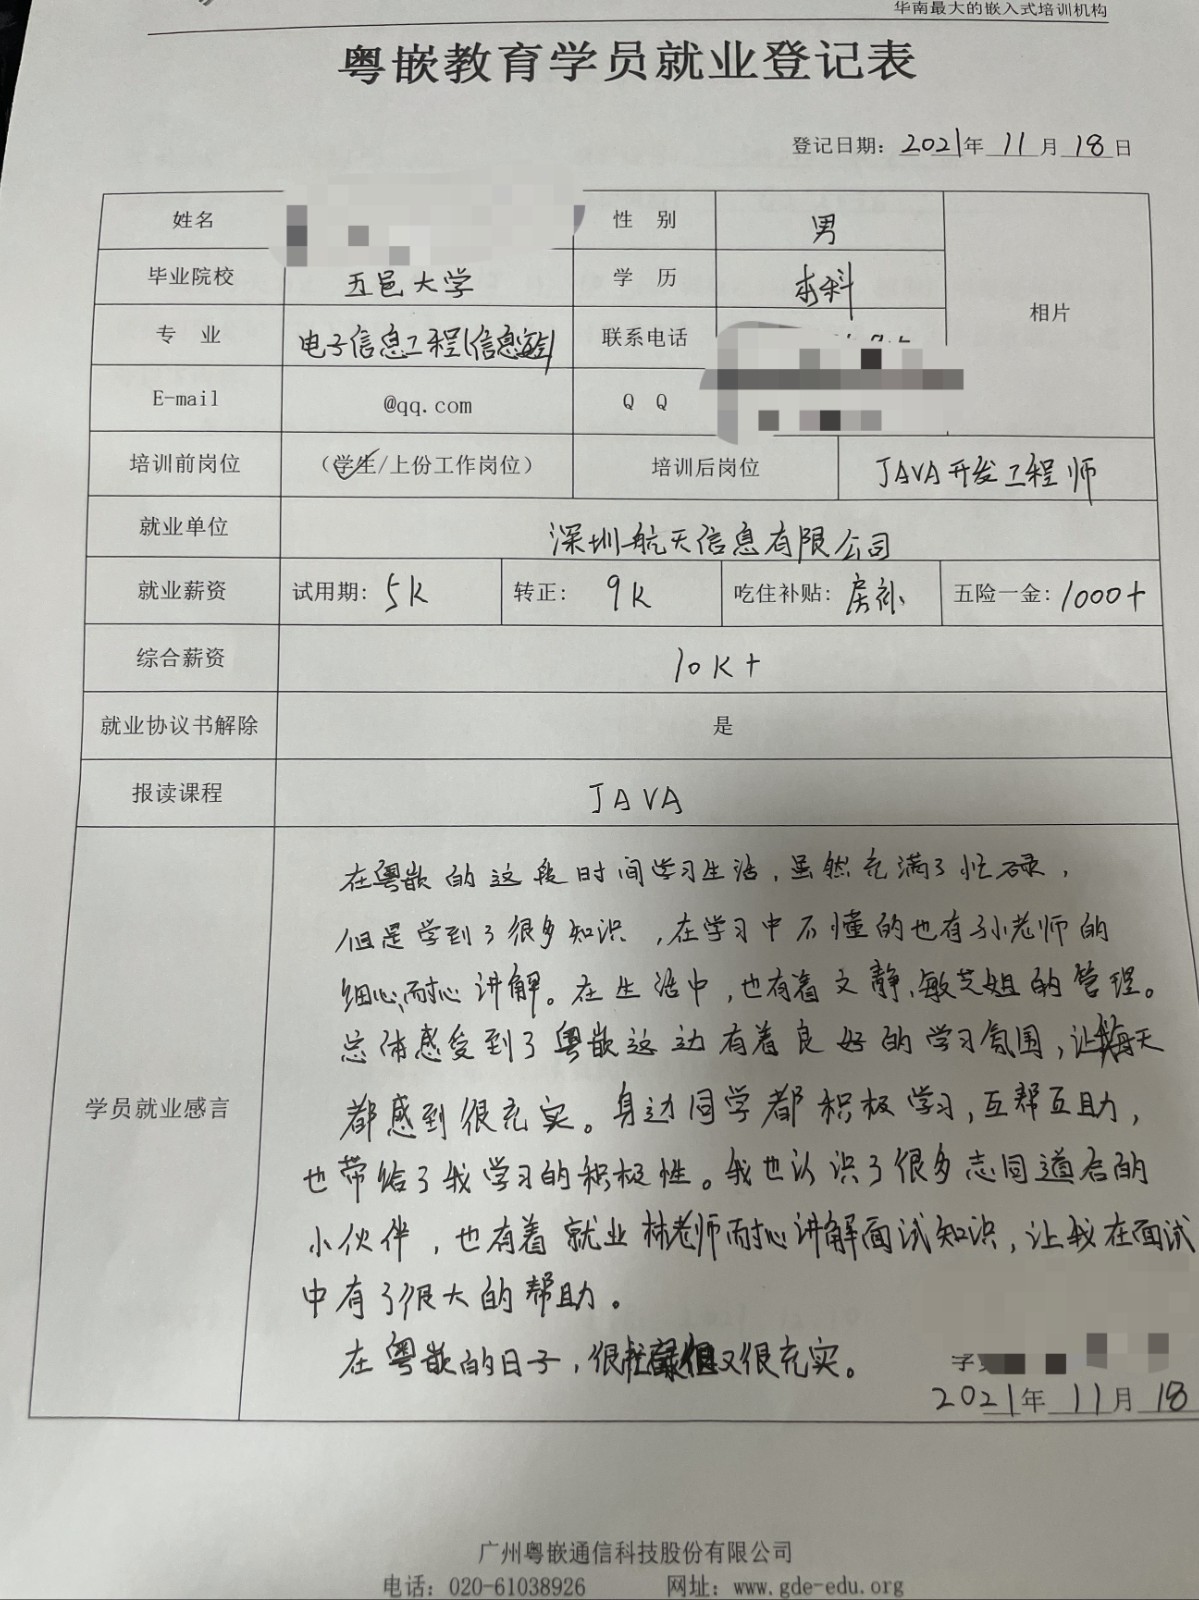 华南最大的嵌入式培训机构
粤嵌教育学员就业登记表
登记日期: 2021年 11月 18日
姓名 性 别 男
毕业院校 五邑大学 学 历 本科
相片
专 业 电子信息工程(信息 联系电话
E-mail @qq.com Q Q
培训前岗位 (学生/上份工作岗位) 培训后岗位 JAVA开发工程师
就业单位 深圳航天信息有限公司
就业薪资 试用期: 5K 转正: 9K 吃住补贴: 房补 五险一金: 1000+
综合薪资 10K+
就业协议书解除 是
报读课程 JAVA
学员就业感言
在粤嵌的这段时间学习生活,虽然充满了忙碌,
但是学到了很多知识,在学习中不懂的也有孙老师的
细心、耐心讲解。在生活中,也有着文静、敏芝姐的管理。
总体感受到了粤嵌这边有着良好的学习氛围,让我每天
都感到很充实。身边同学都积极学习,互帮互助,
也带给了我学习的积极性。我也认识了很多志同道合的
小伙伴,也有着就业林老师耐心讲解面试知识,让我在面试
中有了很大的帮助。
在粤嵌的日子,很忙碌但又很充实。
学
2021年 11月 18
广州粤嵌通信科技股份有限公司
电话: 020-61038926 网址: www.gde-edu.org